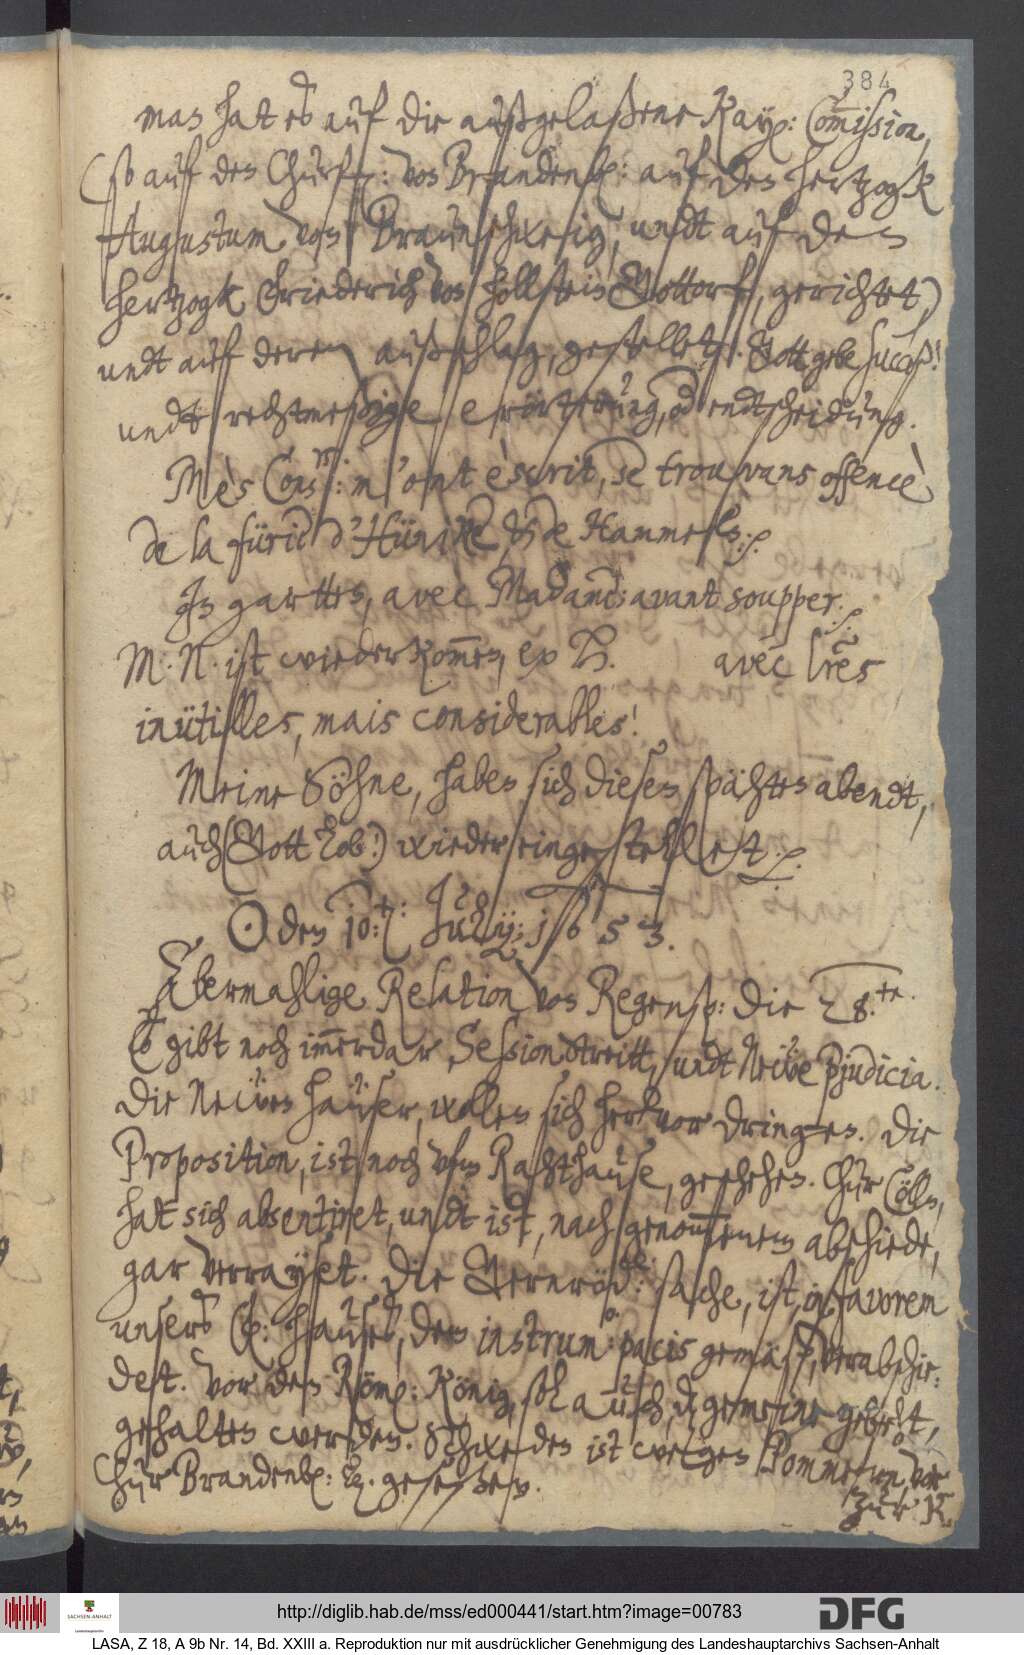 384
man hat es auf die außgelaßene Kay: Commission,
(so auf den Churf: von Brandenb: auf den Hertzogk
Augustum von Braunschweig, undt auf den
Hertzogk Friederich von Hollstein Gottorf, gerichtet)
undt auf deren außschlag, gestellet. Gott gebe Succeß!
undt rechtmeßige erörterung, od endtscheidung.
Mes Cons: m'ont escrit, se trouvans offencè
de la fürie d'Hünike, & de Hammel:
In garten, avec Madame: avant soupper.
M. N. ist wiederkommen, ex B. avec lres
inütilles, mais considerables!
Meine Söhne, haben sich diesen spähten abendt,
auch (Gott Lob!) wieder eingestellet.
☉ den 10: July; 1653.
Abermahlige Relation von Regensp: die 28.te
Es gibt noch immerdar, Session streitt, undt Neue pjudicia.
Die Neuen häuser, wollen sich hervor dringen. Die
Proposition, ist noch ufm Rahthause, geschehen. Chur Cölln,
hat sich absentiret, undt ist, nach genommenem abschiede,
gar verrayset. Die Gernröd: sache, ist in favorem
unsers F: Hauses, dem instrum: pacis gemäß, verabschie-
dest. Vor den Röm: König, soll auch, d gemeine gebeht,
gehalten werden. Schweden ist wegen Pommern, vor
Chur Brandenb: gesessen.
zur R.
http://diglib.hab.de/mss/ed000441/start.htm?image=00783
DFG
SACHSEN-ANHALT
LASA, Z 18, A 9b Nr. 14, Bd. XXIII a. Reproduktion nur mit ausdrücklicher Genehmigung des Landeshauptarchivs Sachsen-Anhalt